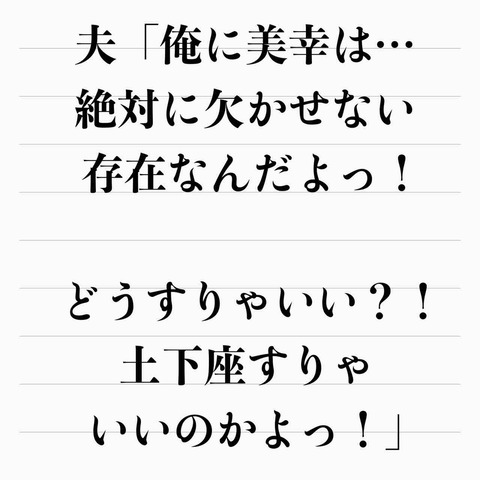 夫「俺に美幸は…
絶対に欠かせない
存在なんだよっ！
どうすりゃいい？！
土下座すりゃ
いいのかよっ！」